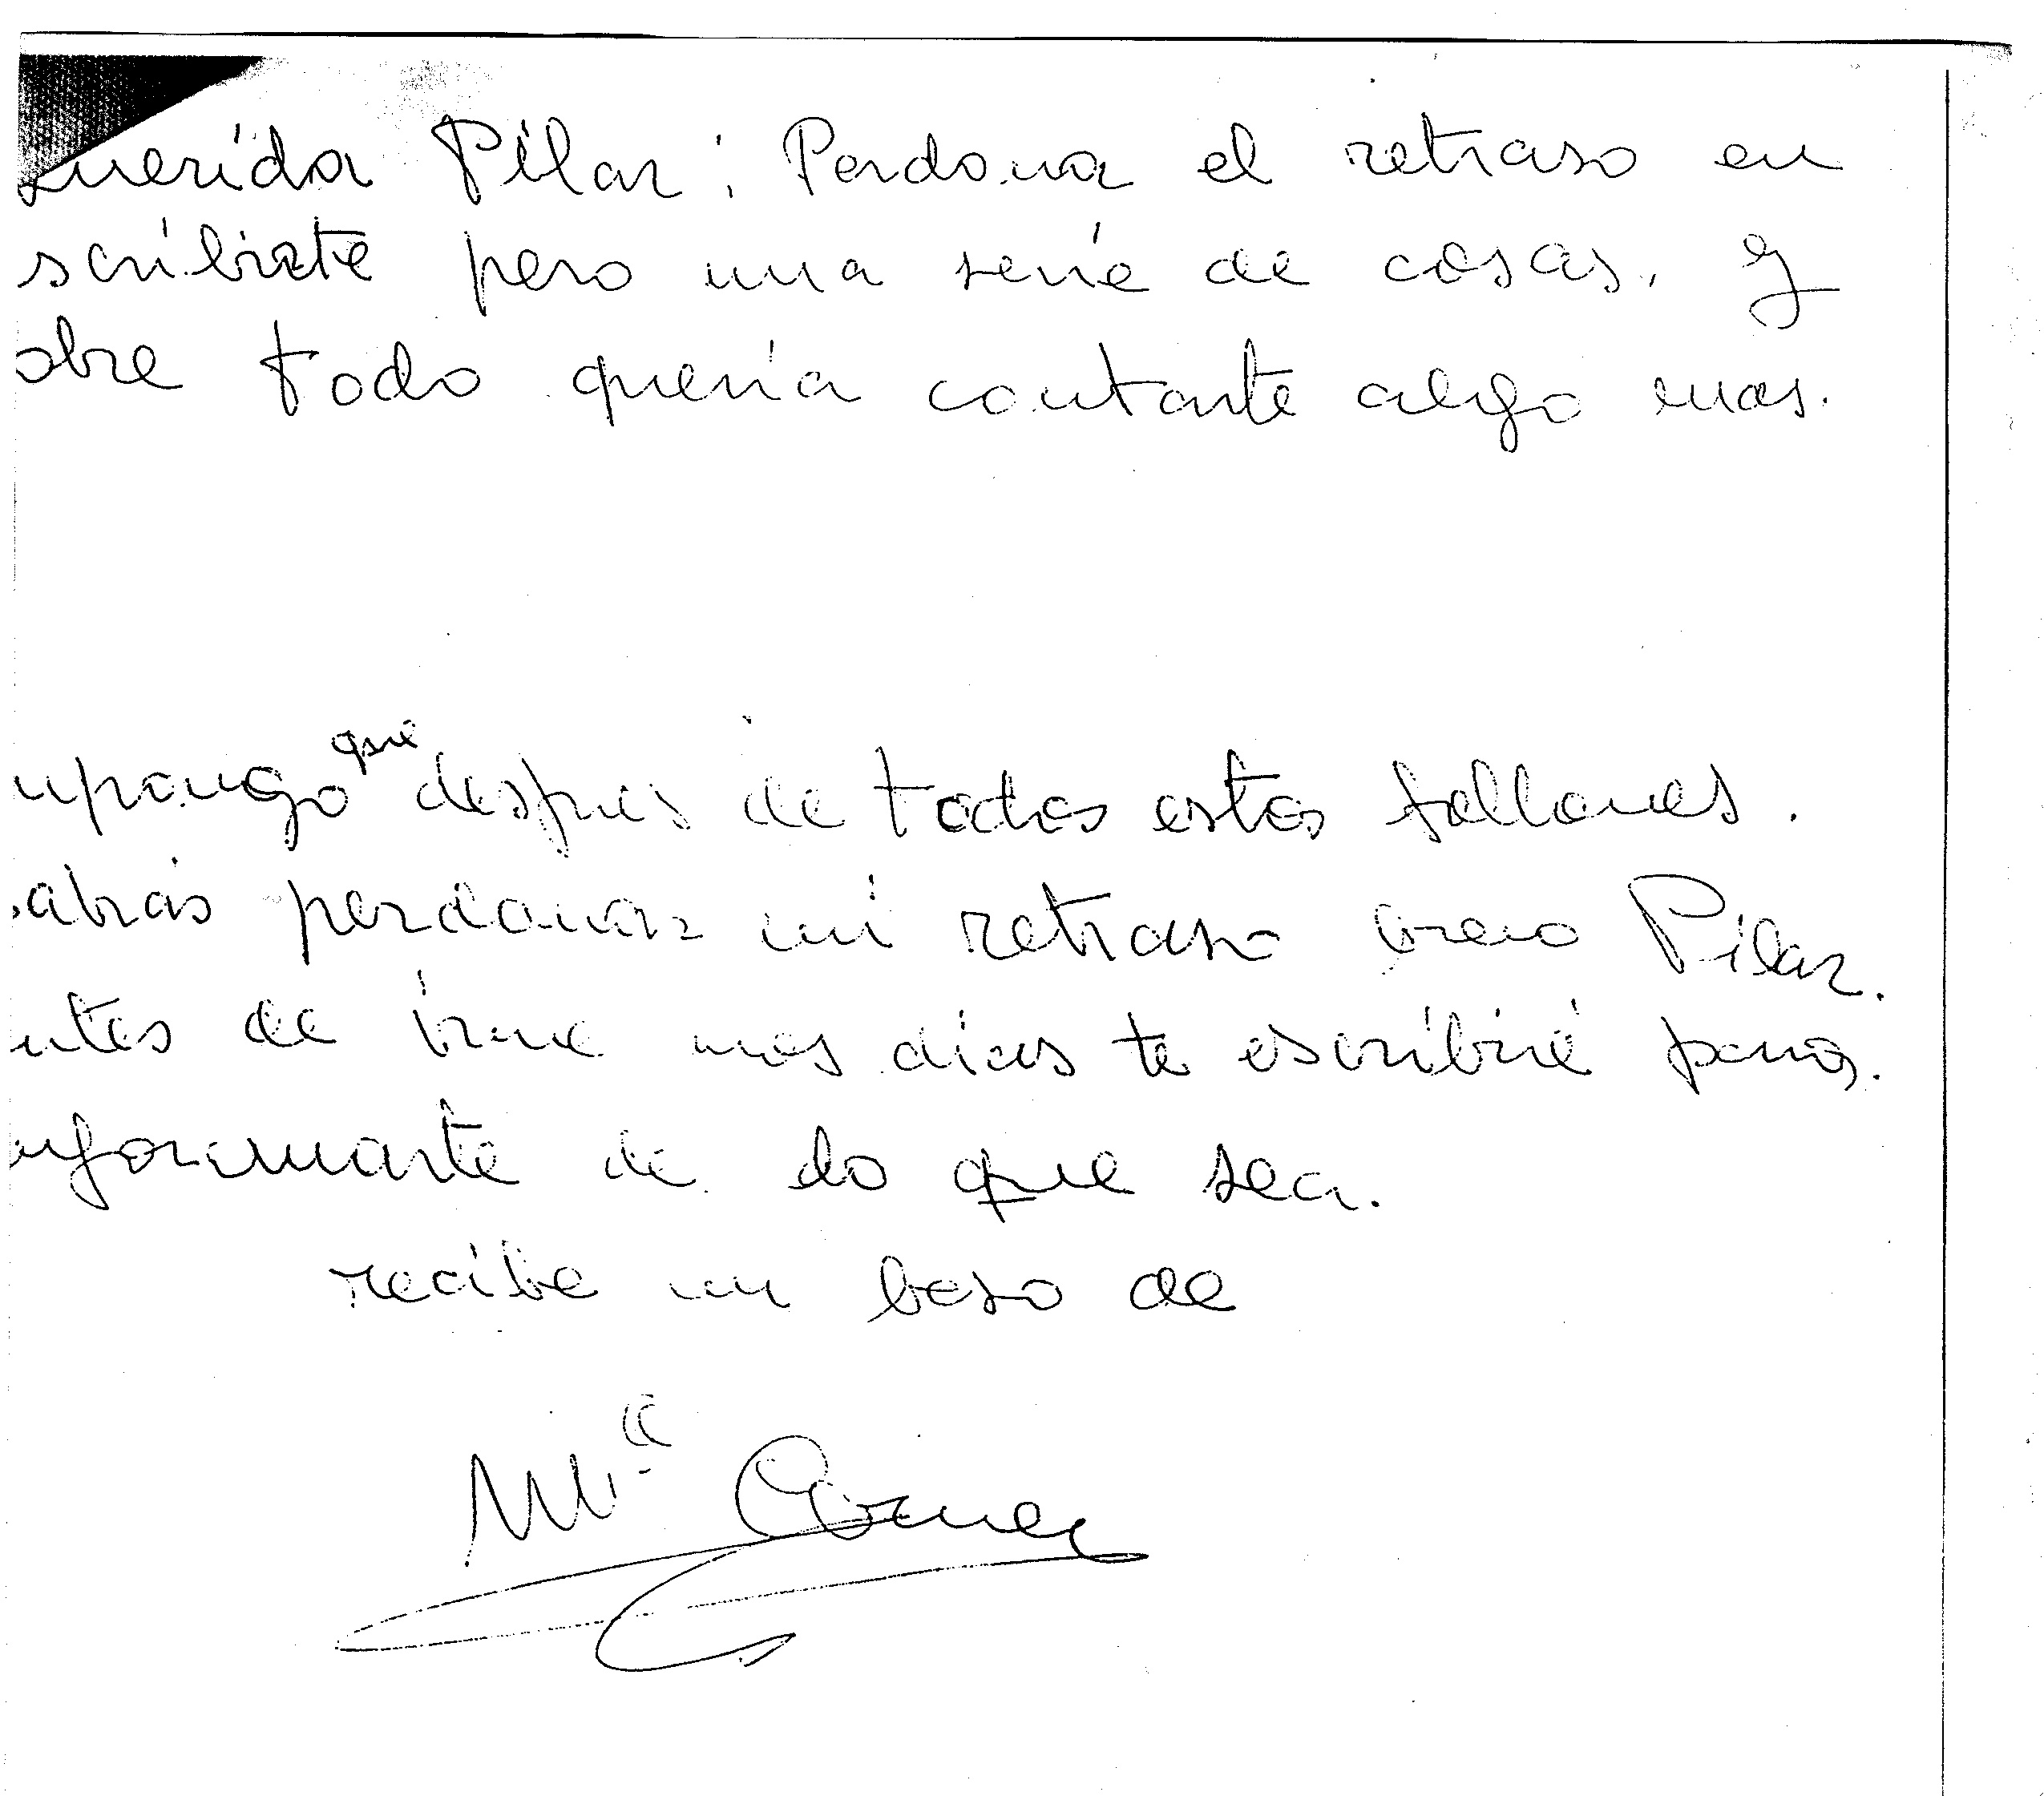 Querida Pilar: Perdona el retraso en
scribirte pero una serie de cosas, y
obre todo quería contarte algo mas.
upongo que despues de todos estos follones.
abrás perdonar mi retraso Pilar.
ntes de irme unos dias te escribiré para
nformarte de lo que sea.
recibe un beso de
Mª Carmen